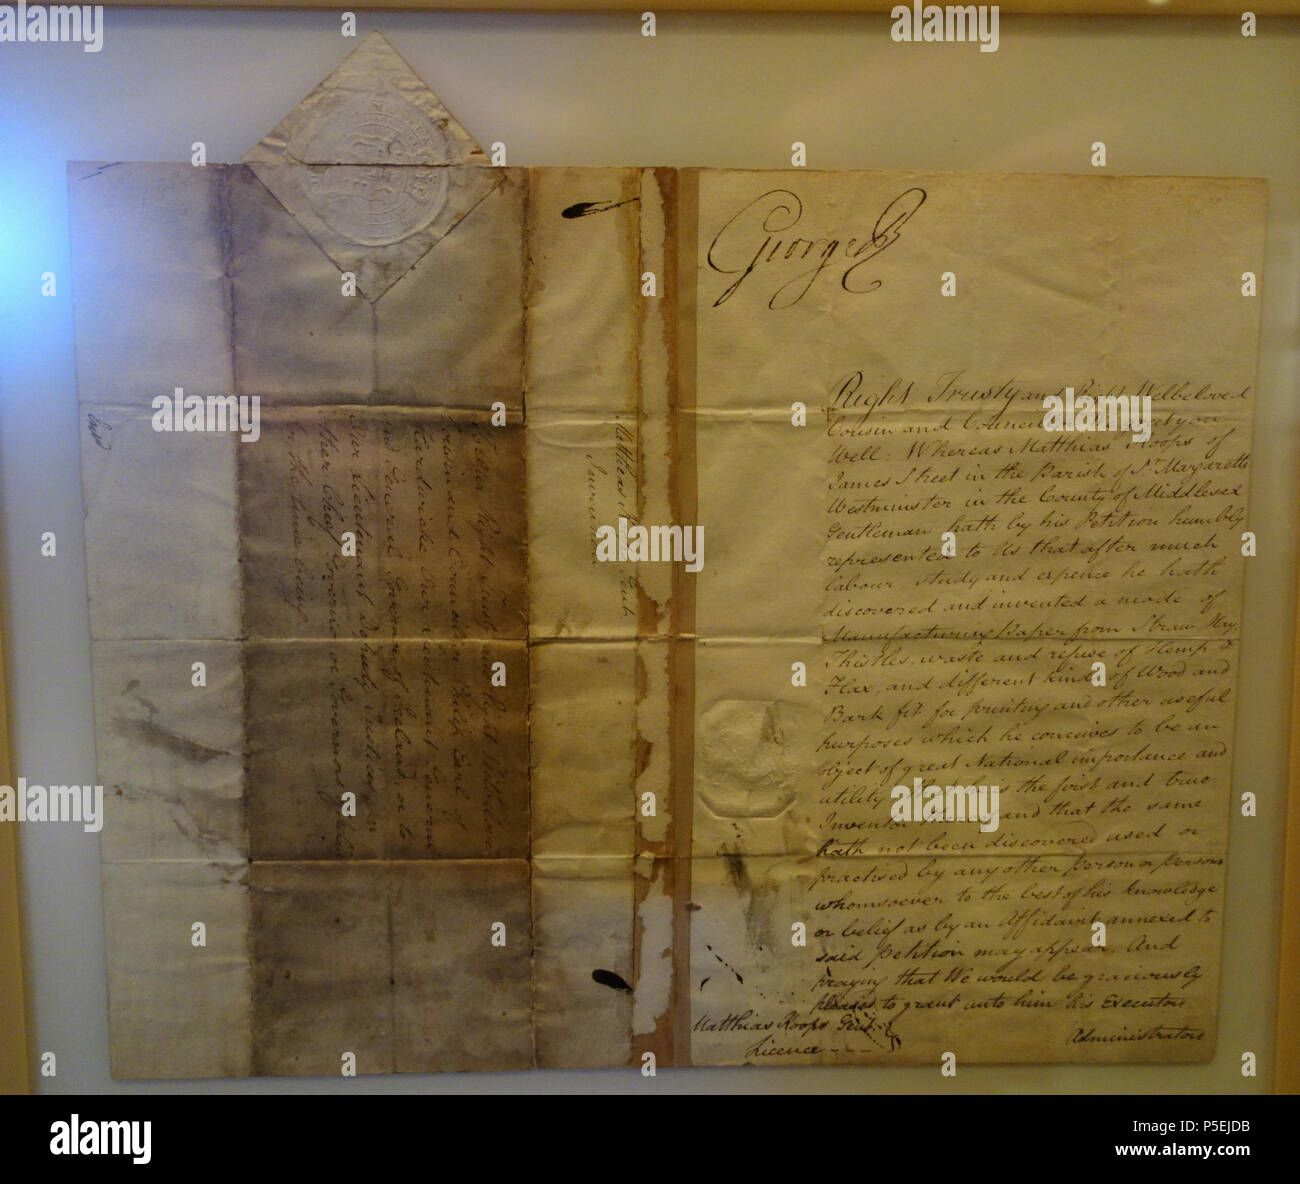 George R
Right Trusty and Right Welbeloved
Cousin and Councillor We Greet you
Well: Whereas Matthias Koops of
James Street in the Parish of St. Margaretts
Westminster in the County of Middlesex
Gentleman hath by his Petition humbly
represented to Us that after much
labour study and expence he hath
discovered and invented a mode of
Manufacturing Paper from Straw Hay,
Thistles, waste and refuse of Hemp &
Flax, and different kinds of Wood and
Bark fit for printing and other useful
purposes which he conceives to be an
object of great National importance and
utility That he is the first and true
Inventor thereof and that the same
hath not been discovered used or
practised by any other person or persons
whomsoever to the best of his knowledge
or belief as by an Affidavit annexed to
said Petition may appear. And
praying that We would be graciously
pleased to grant unto him his Executors
Administrators
Matthias Koops Gent.
Licence
Matthias Koops Gent
Invention
To Our Right Trusty and Right Welbeloved
Cousin and Councillor Philip Earl of
Hardwicke Our Lieutenant General
and General Governor of Ireland, or to
Our Lieutenant Deputy Justices or
other Chief Governor or Governors
be the time being
alamy
alamy
Image ID: P5EJDB
www.alamy.com